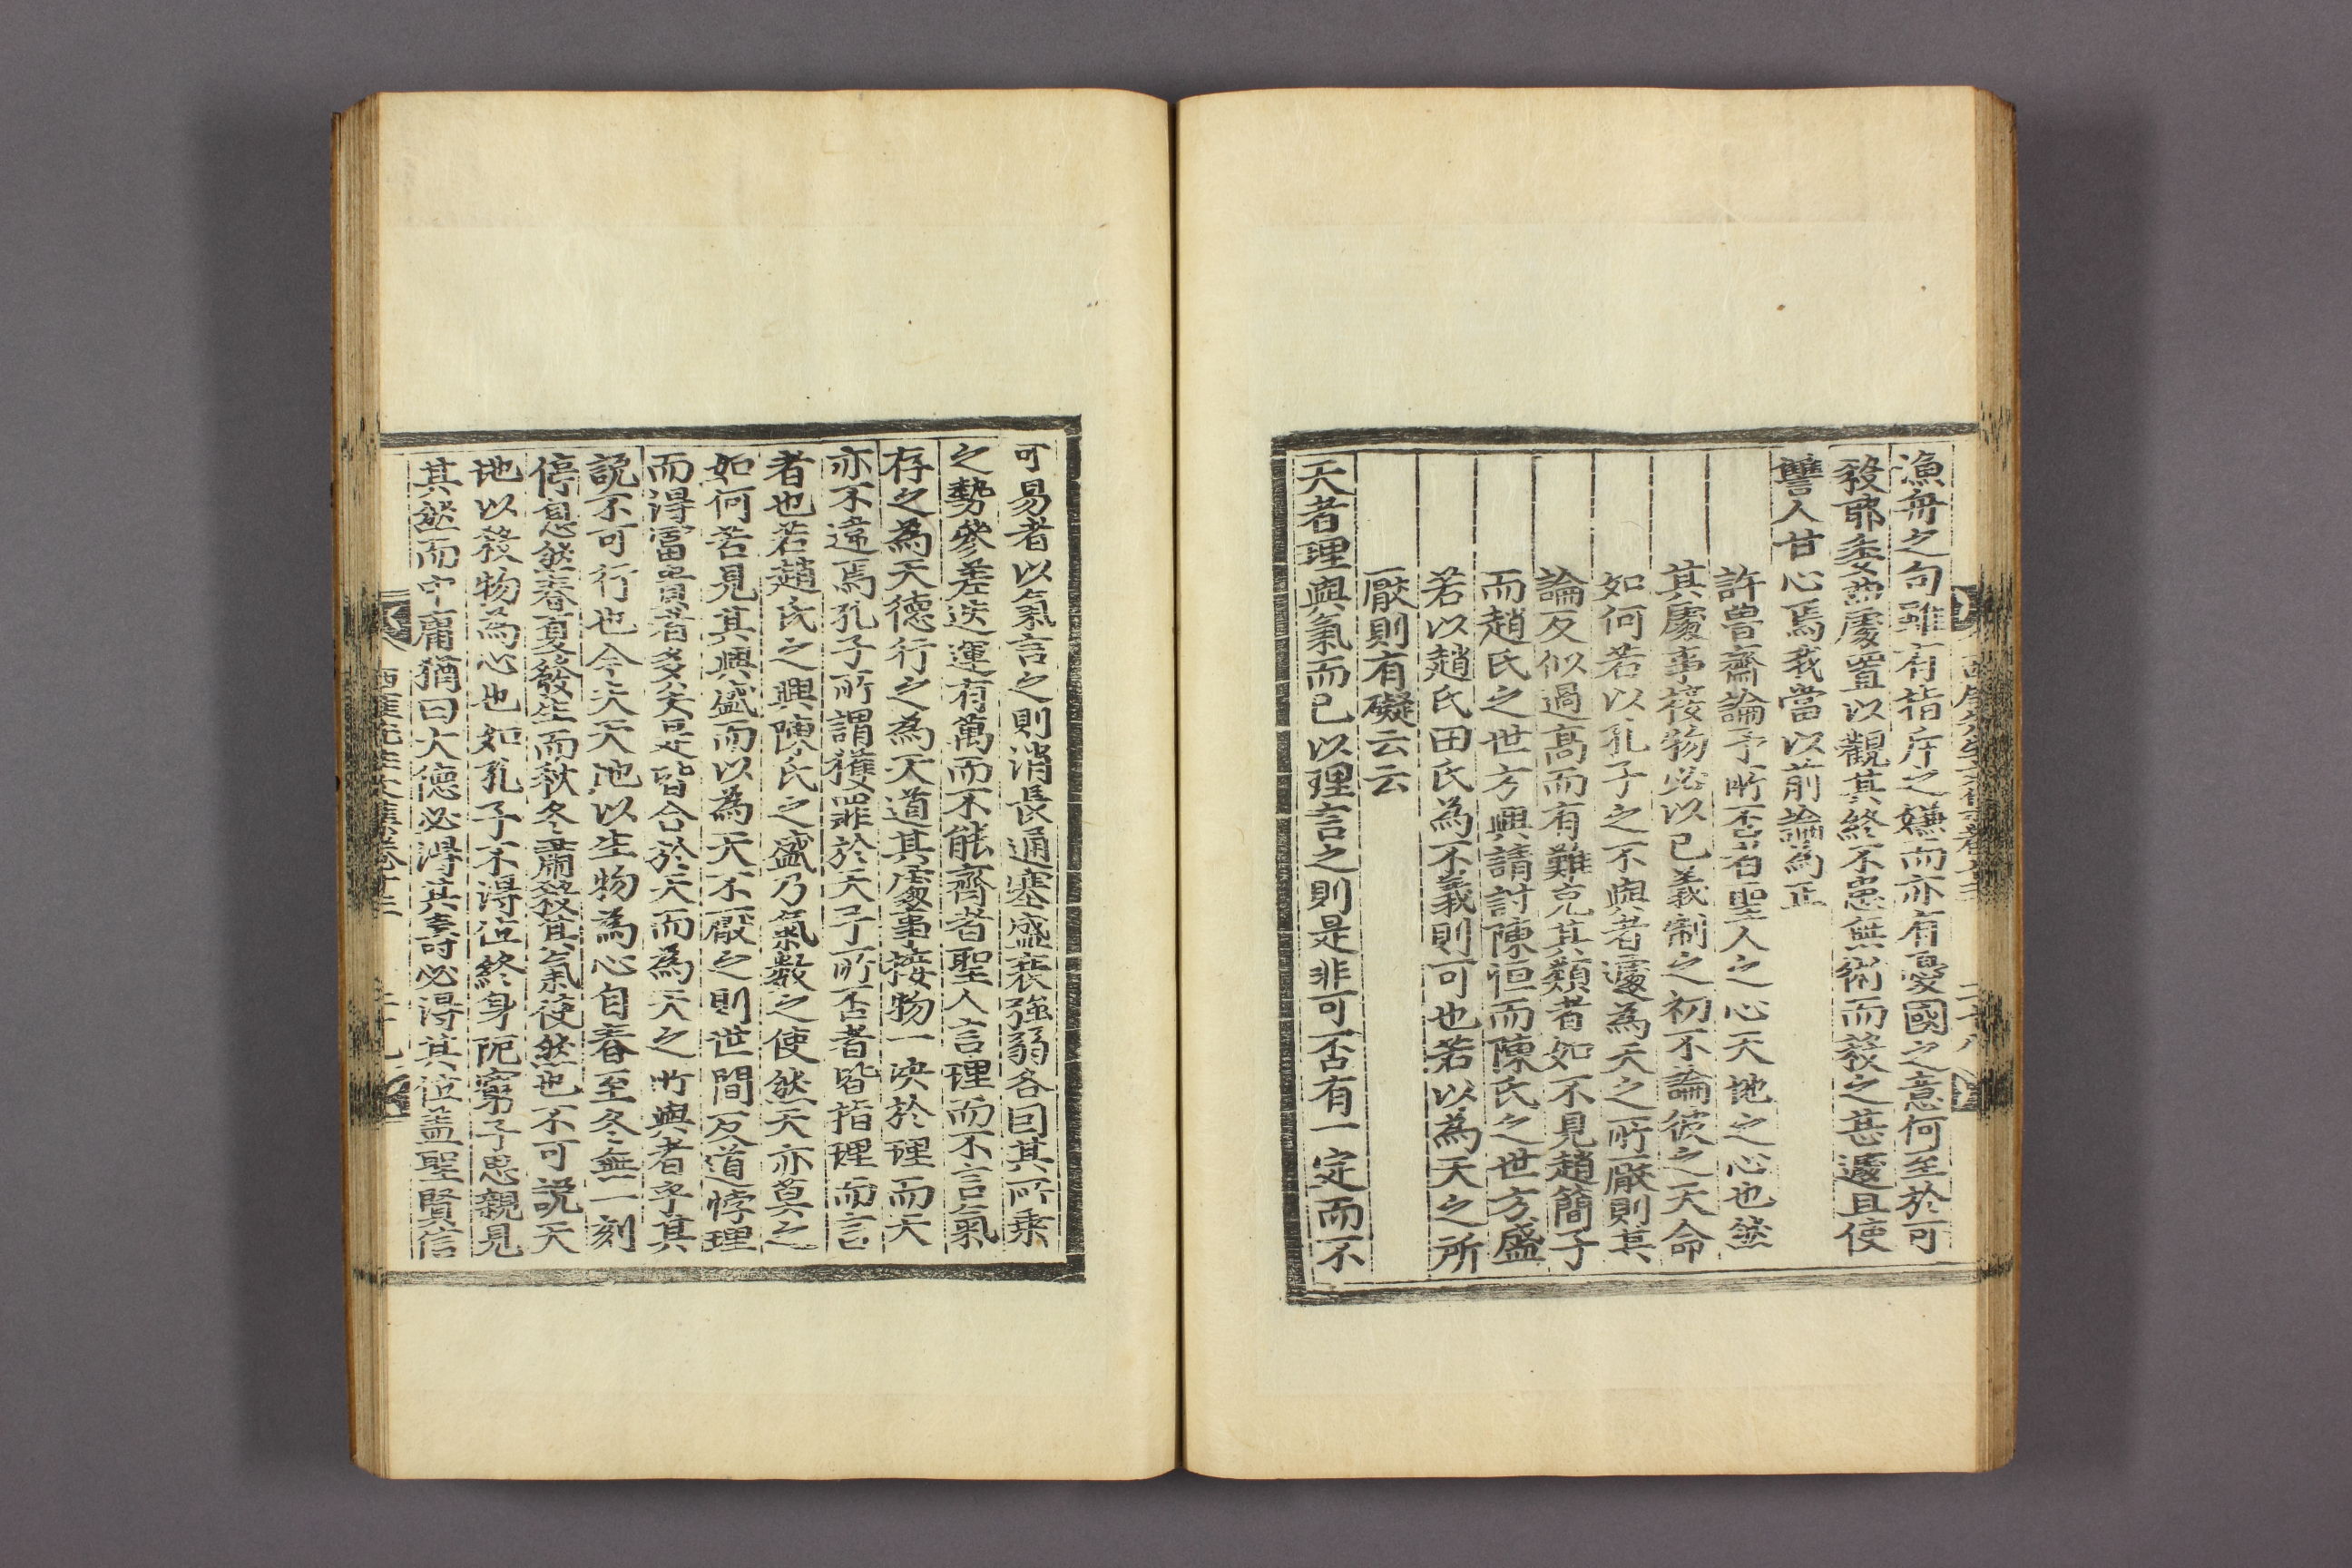 漁舟之句雖有指斥之嫌而亦有憂國之意何至於可
殺耶委曲處置以觀其終不患無術而發之甚遽且使
讐人甘心焉我當以前論為正
許魯齋論予所否者聖人之心天地之心也然
其處事接物必以已義制之初不論彼之天命
如何若以孔子之不與者遽為天之所厭則其
論反似過高而有難克其類者如不見趙簡子
而趙氏之世方興請討陳恒而陳氏之世方盛
若以趙氏田氏為不義則可也若以為天之所
厭則有礙云云
天者理與氣而已以理言之則是非可否有一定而不
可易者以氣言之則消長通塞盛衰強弱各因其所乘
之勢參差迭運有萬而不能齊者聖人言理而不言氣
存之為天德行之為天道其處事接物一决於理而天
亦不違焉孔子所謂獲罪於天予所否者皆指理而言
者也若趙氏之興陳氏之盛乃氣數之使然天亦莫之
如何若見其興盛而以為天不厭之則世間反道悖理
而得富貴者多矣是皆合於天而為天之所與者乎其
說不可行也今夫天地以生物為心自春至冬無一刻
停息然春夏發生而秋冬肅殺其氣使然也不可說天
地以殺物為心也如孔子不得位終身阨窮子思親見
其然而中庸猶曰大德必得其壽必得其位盖聖賢信